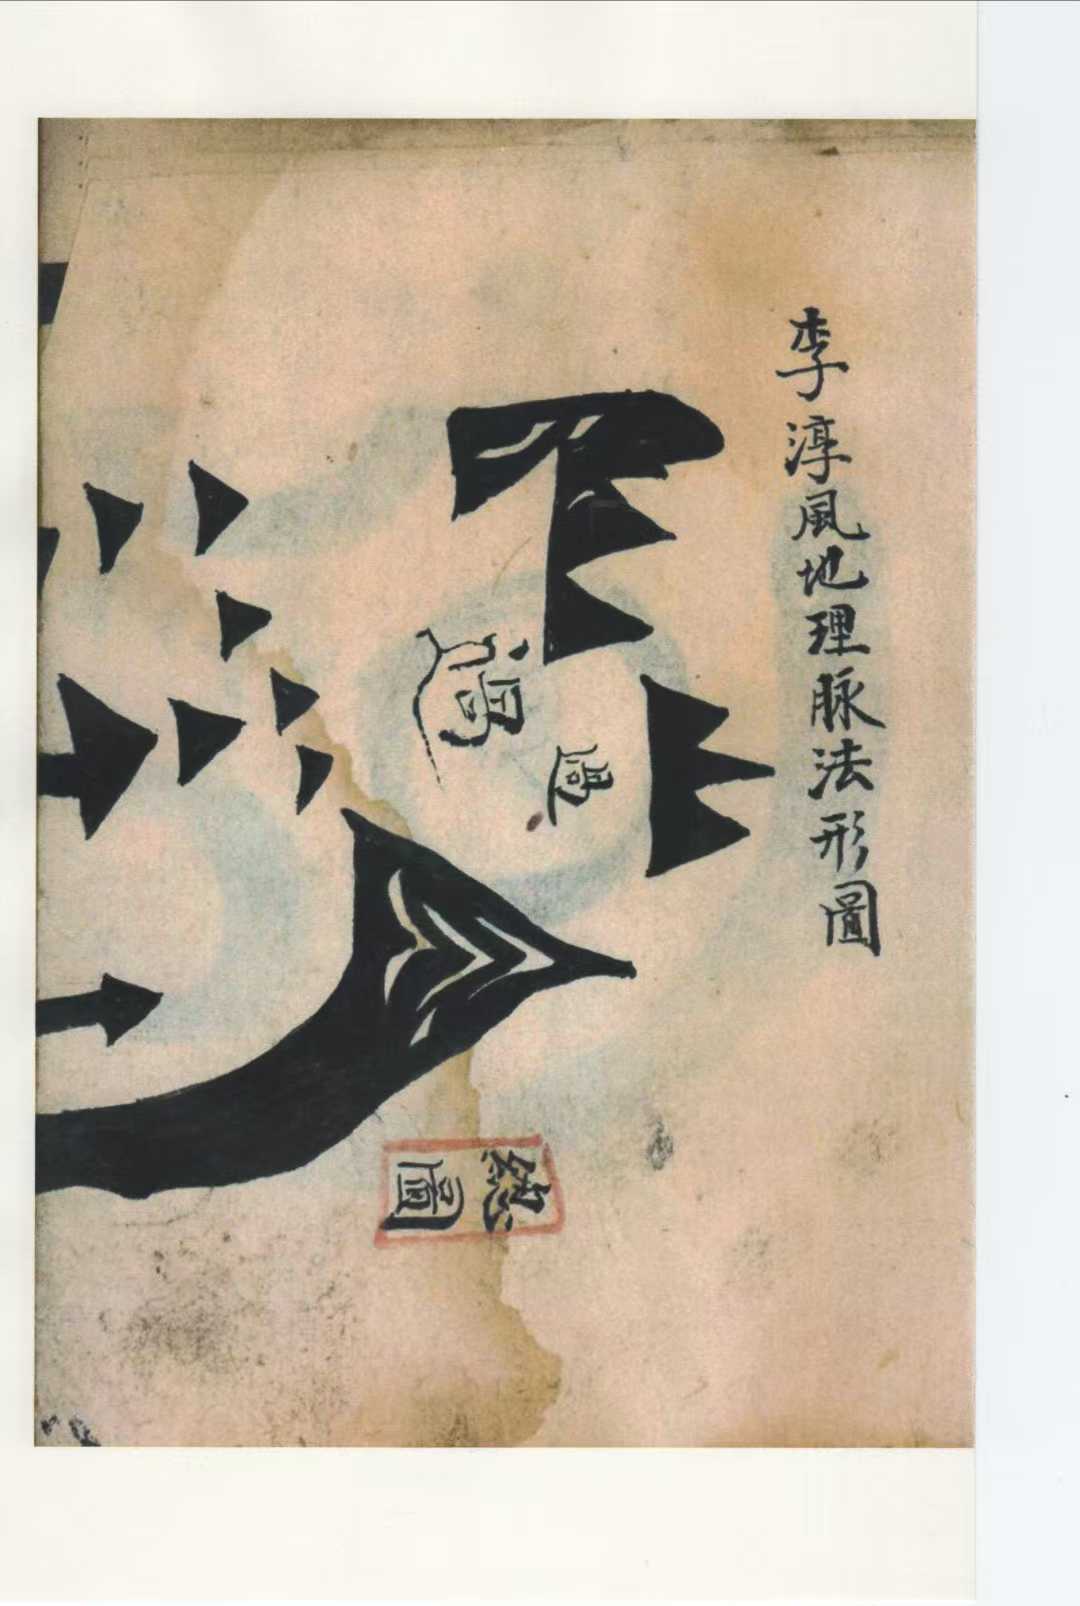 李淳風地理脉法形圖
總圖